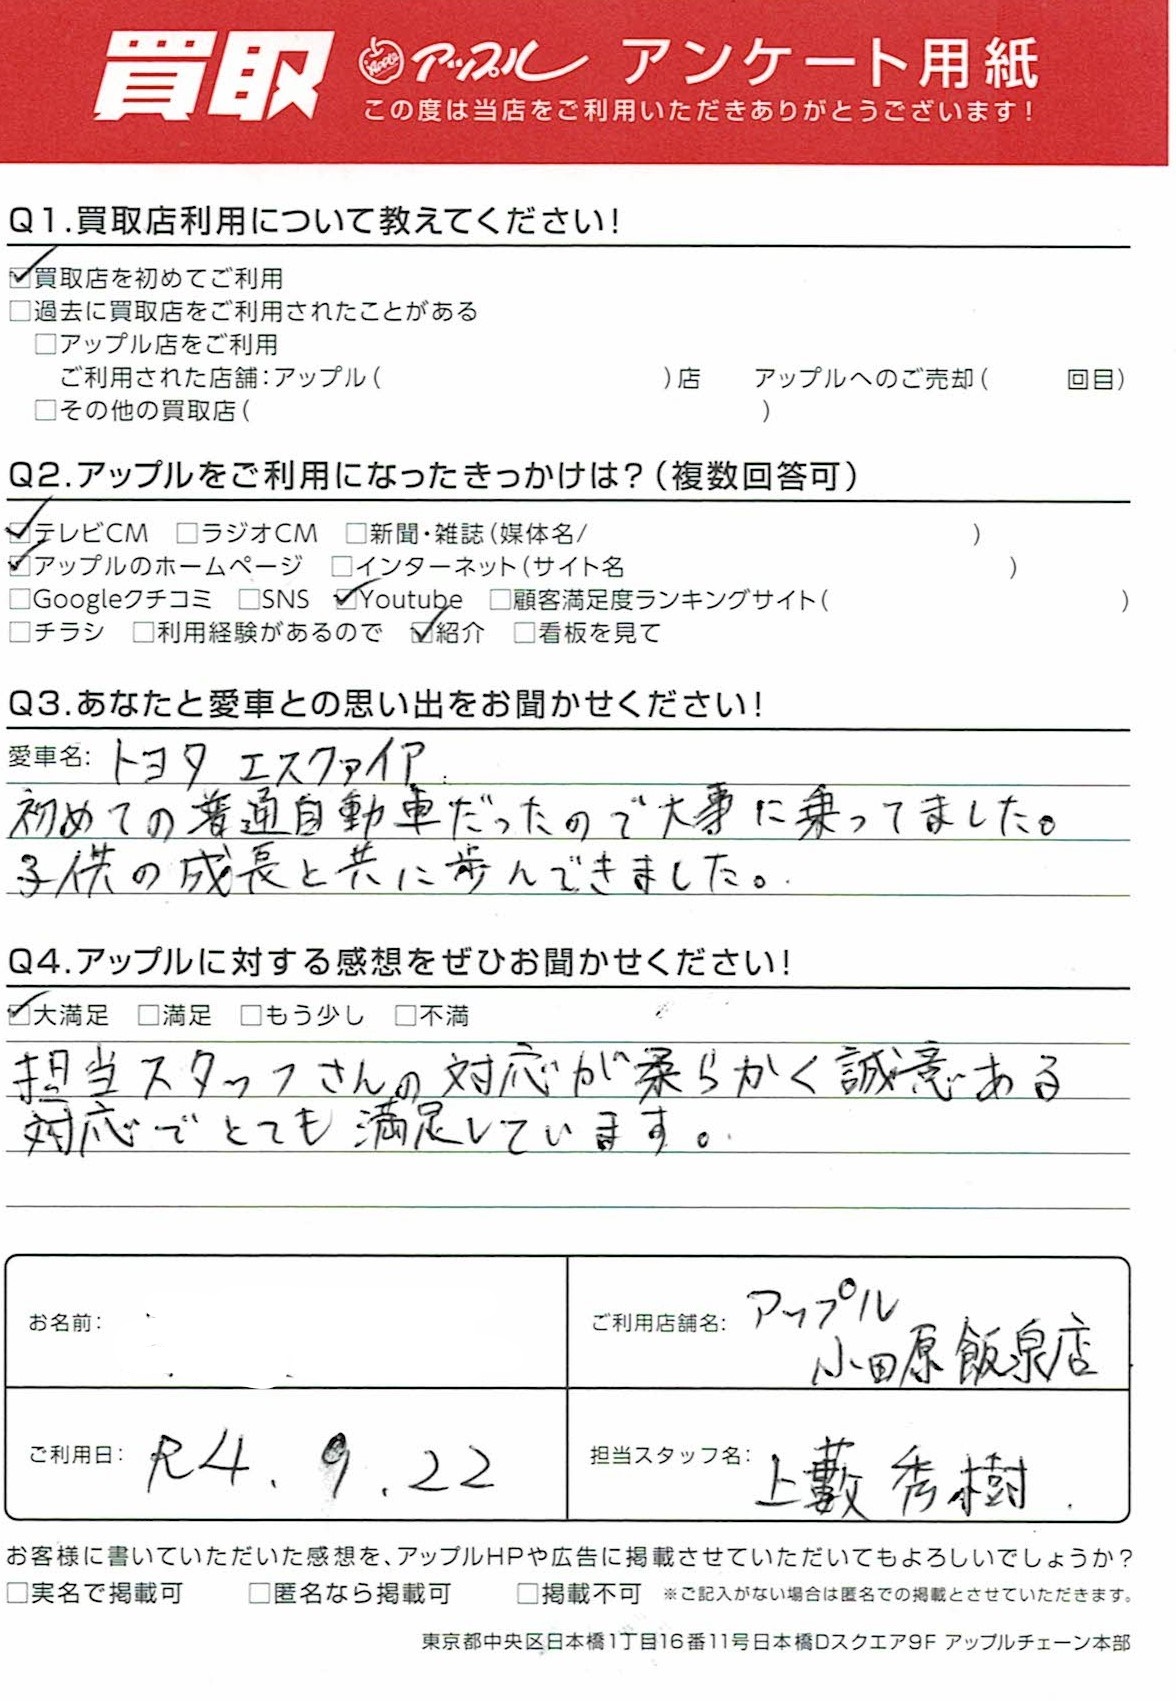 買取 Apple アップル アンケート用紙
この度は当店をご利用いただきありがとうございます!
Q1.買取店利用について教えてください!
☑買取店を初めてご利用
□過去に買取店をご利用されたことがある
□アップル店をご利用
ご利用された店舗:アップル( )店 アップルへのご売却( 回目)
□その他の買取店( )
Q2.アップルをご利用になったきっかけは?(複数回答可)
☑テレビCM □ラジオCM □新聞・雑誌(媒体名/ )
☑アップルのホームページ □インターネット(サイト名 )
□Googleクチコミ □SNS ☑Youtube □顧客満足度ランキングサイト( )
□チラシ □利用経験があるので ☑紹介 □看板を見て
Q3.あなたと愛車との思い出をお聞かせください!
愛車名: トヨタ エスクァイア
初めての普通自動車だったので大事に乗ってました。
子供の成長と共に歩んできました。
Q4.アップルに対する感想をぜひお聞かせください!
☑大満足 □満足 □もう少し □不満
担当スタッフさんの対応が柔らかく誠意ある
対応でとても満足しています。
お名前:
ご利用店舗名: アップル
小田原飯泉店
ご利用日: R4.9.22
担当スタッフ名: 上藪 秀樹
お客様に書いていただいた感想を、アップルHPや広告に掲載させていただいてもよろしいでしょうか?
□実名で掲載可 □匿名なら掲載可 □掲載不可 ※ご記入がない場合は匿名での掲載とさせていただきます。
東京都中央区日本橋1丁目16番11号日本橋Dスクエア9F アップルチェーン本部